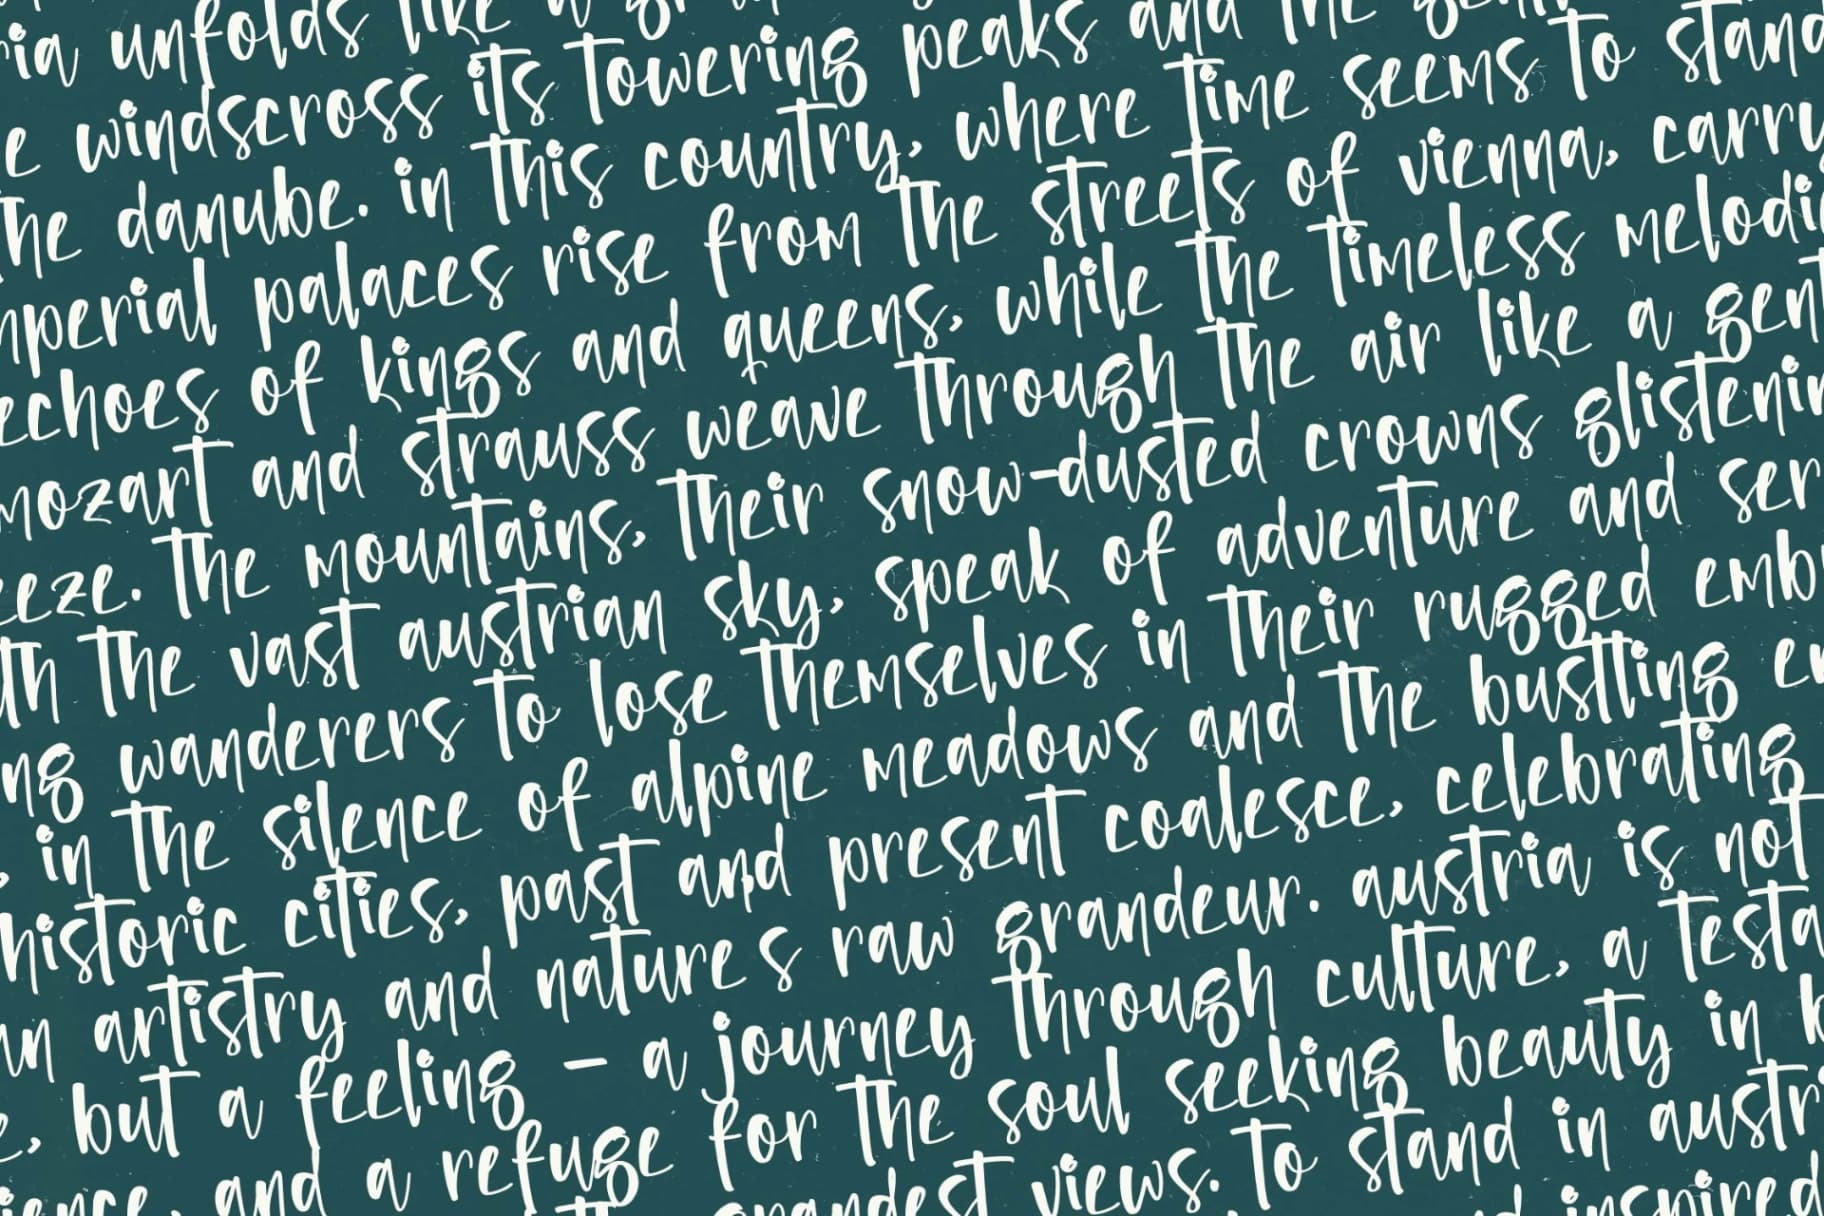 ria unfolds like a
e windscross its towering peaks and the
the danube. in this country, where time seems to stand
mperial palaces rise from the streets of vienna, carry
echoes of kings and queens, while the timeless melodi
mozart and strauss weave through the air like a gent
eeze. the mountains, their snow-dusted crowns glistenin
th the vast austrian sky, speak of adventure and ser
ng wanderers to lose themselves in their rugged emb
, in the silence of alpine meadows and the bustling en
historic cities, past and present coalesce, celebrating
an artistry and nature s raw grandeur. austria is not
e, but a feeling – a journey through culture, a testa
ience, and a refuge for the soul seeking beauty in b
grandest views. to stand in austr
inspired